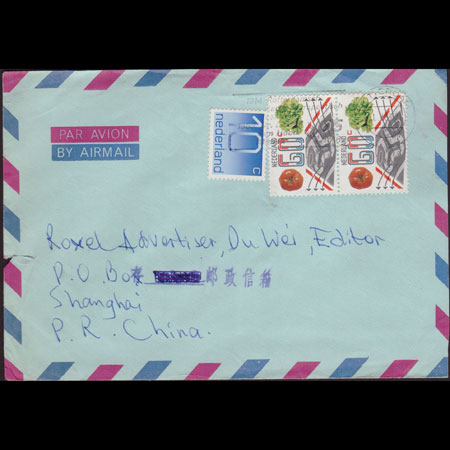 PAR AVION
BY AIRMAIL
10 c
nederland
NEDERLAND 60 c
NEDERLAND 60 c
Roxel Advertiser, Du Wei, Editor
P.O. Box 邮政信箱
Shanghai
P.R. China.